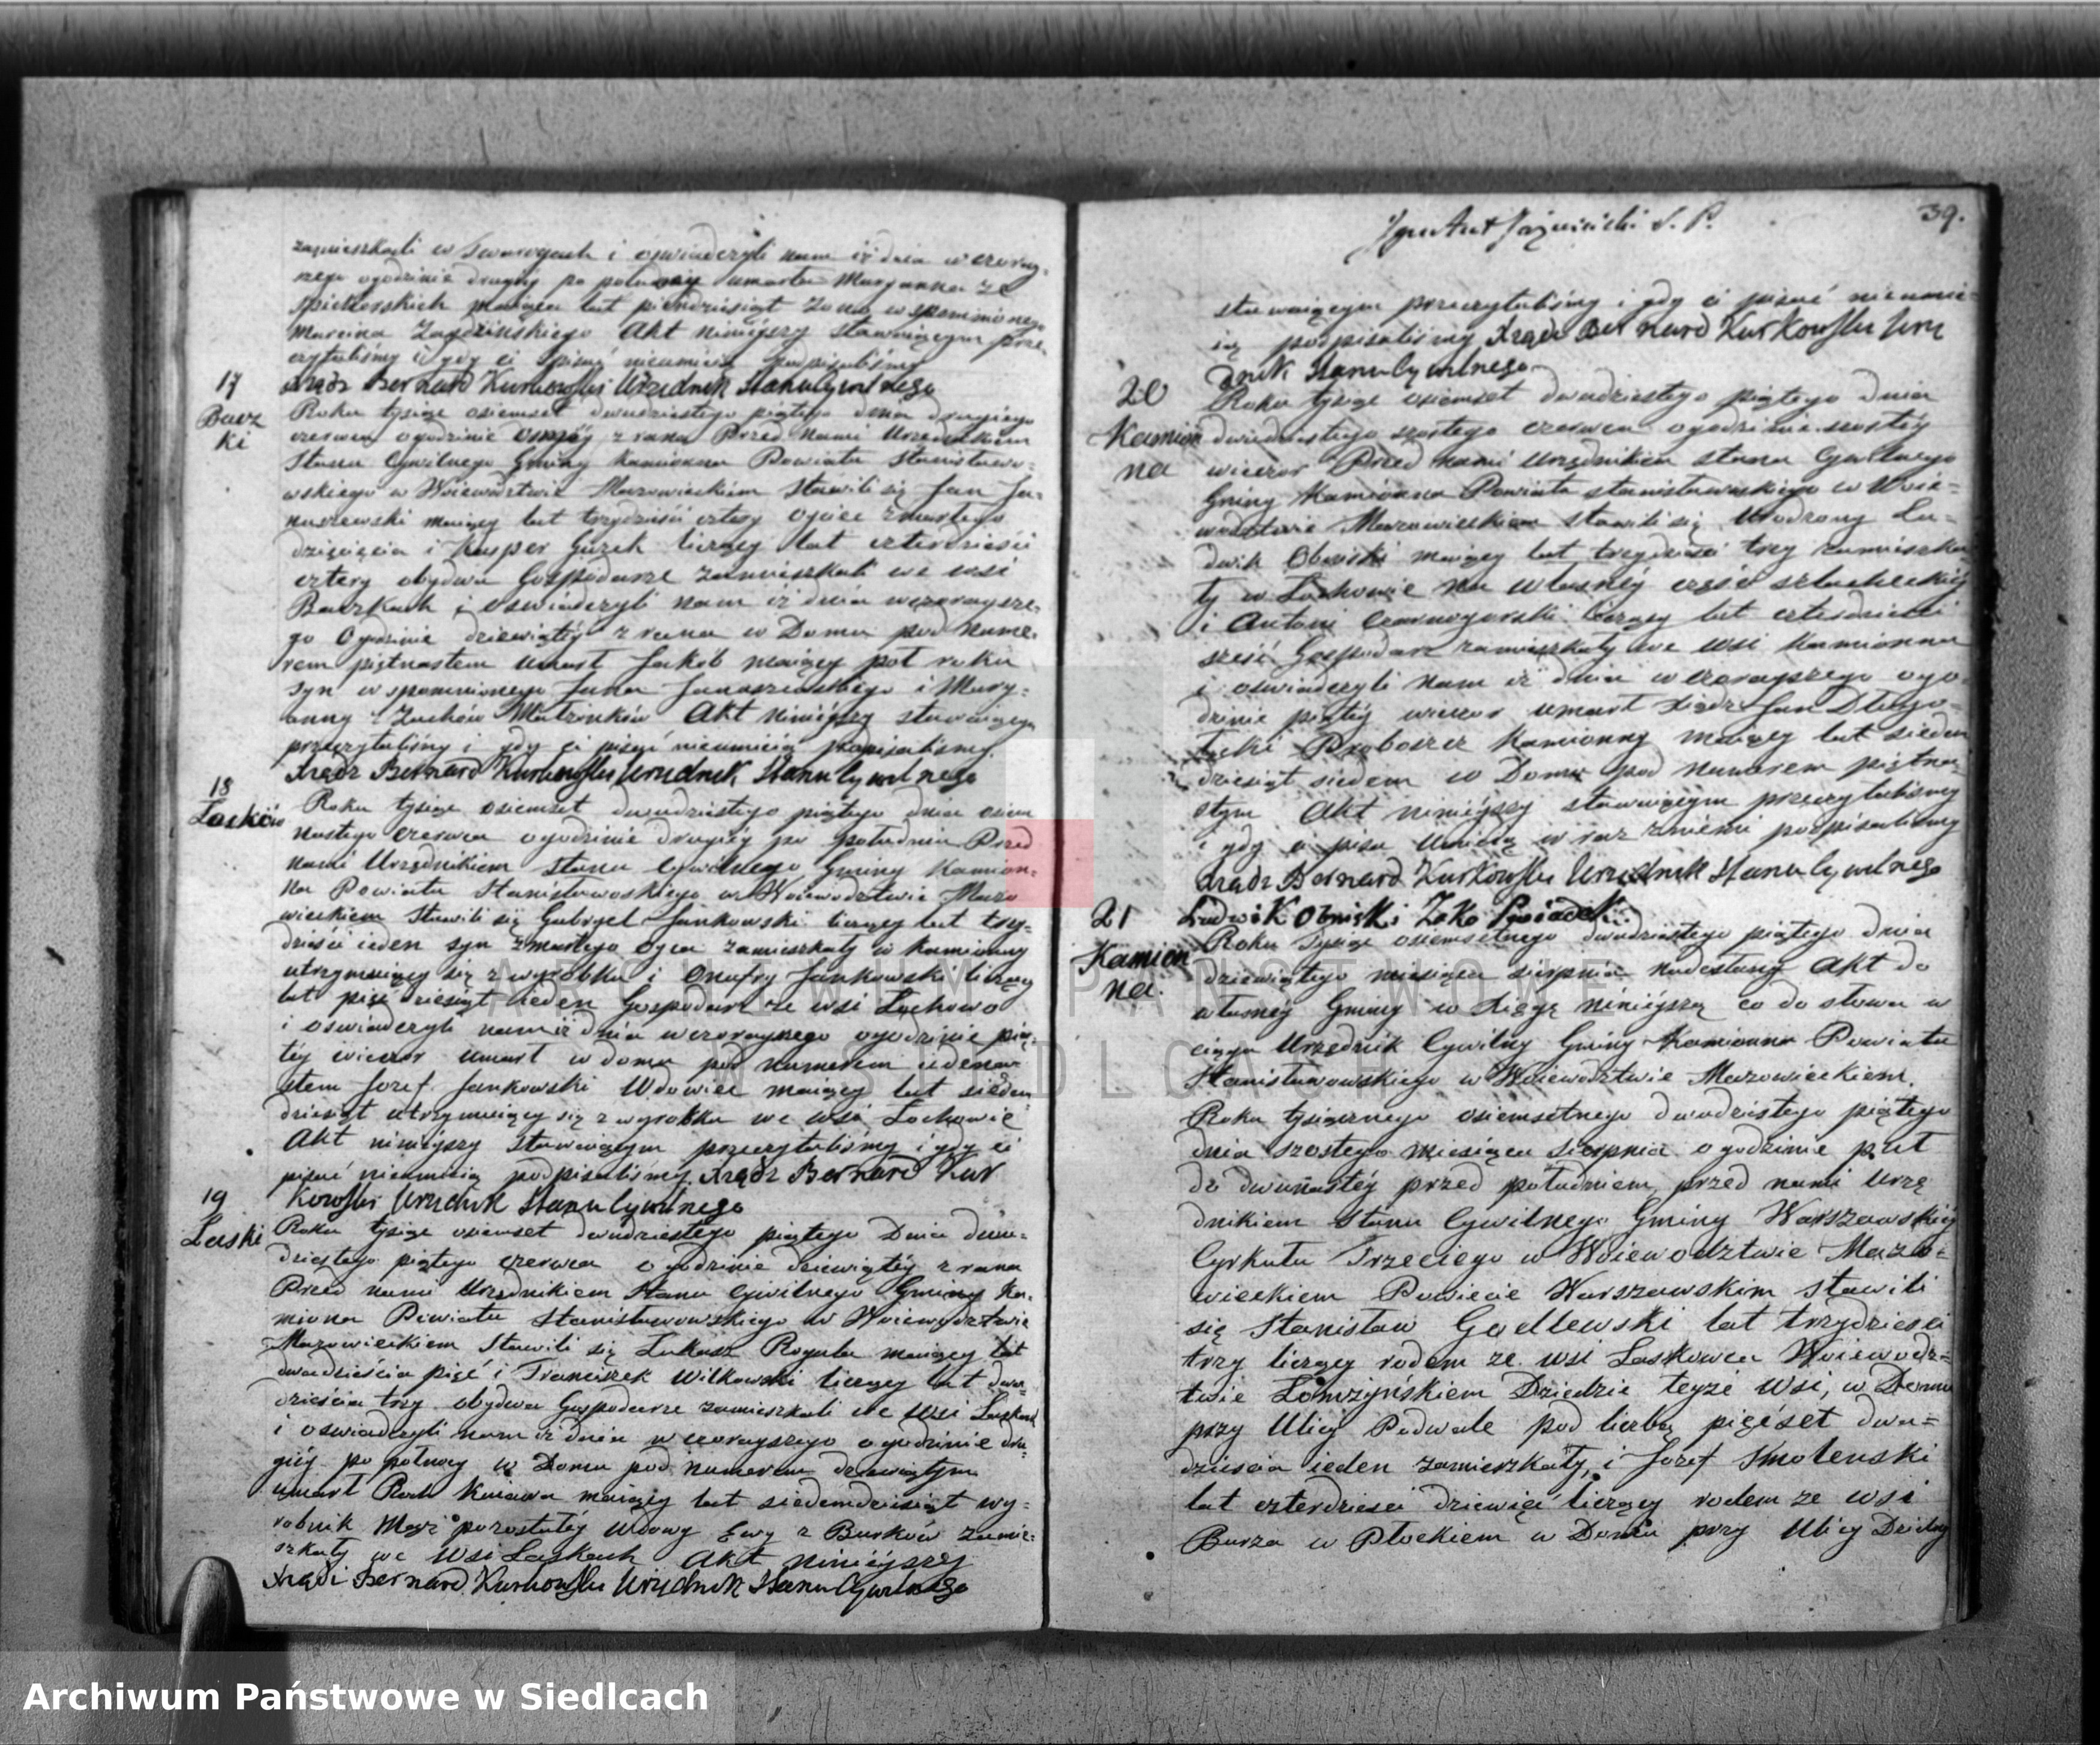 zamieszkali w Twarogach i oświadczyli nam iż dnia wczoray-
szego ogodzinie drugiéy po północy umarła Maryanna ze
maiąca lat pięćdziesiąt Zona wspomnionego
Marcina Zagdzińskiego Akt ninieyszy stawaiącym prze-
czytaliśmy i gdy ci pisać nieumieią podpisaliśmy
Xiądz Bernard Kurkowski Urzednik Stanu Cywilnego
17
Bacz
ki
Roku tysiąc osiemset dwudziestego piątego dnia drugiego
czerwca ogodzinie osmeý z rana Przed Nami Urzędnikiem
Stanu Cywilnego Gminy Kamionna Powiatu Stanisławo-
wskiego w Woiewództwie Mazowieckim Stawili się Jan Ja-
naszewski maiący lat trzydzieści cztery oyciec zmarłego
dziecięcia i Kasper Gurek liczący lat czterdzieści
cztery obydwa Gospodarze zamieszkali we wsi
Baczkach i oświadczyli nam iż dnia wczoraysze-
go Ogodzinie dziewiątéy z rana w Domu pod Nume-
rem piętnastem umarł Jakób maiący pół roku
Syn wspomnionego Jana Janaszewskiego i Mary-
anny z Małżonków Akt ninieyszy stawaiącym
przeczytaliśmy i gdy ci pisać nieumieią podpisaliśmy.
Xiądz Bernard Kurkowski Urzednik Stanu Cywilnego
18
Łosków
Roku tysiąc osiemset dwudziestego piątego dnia osiem
nastego czerwca ogodzinie drugiéy po południu Przed
nami Urzędnikiem Stanu Cywilnego Gminy Kamion-
na Powiatu Stanisławoskiego w Woiewodztwie Mazo
wieckiem Stawili się Gabryel Jankowski liczący lat trzy-
dzieści ieden syn zmarłego Oyca zamieszkały w Kamionny
utrzymuiący się z wyrobku i Onufry Jankowski liczący
lat pięćdziesiąt ieden Gospodarz ze wsi Łochowo
i oświadczyli nam iż dnia wczorayszego ogodzinie pią-
téy wieczór umarł w domu pod numerem iedena-
stem Jozef Jankowski Wdowiec maiący lat siedm-
dziesiąt utrzymuiący się z wyrobku we wsi Łochowie
Akt ninieyszy stawaiącym przeczytaliśmy i gdy ci
pisać nieumieią podpisaliśmy. Xiądz Bernard Kur
kowski Urzednik Stanu Cywilnego
19
Laski
Roku tysiąc osiemset dwudziestego piątego Dnia dwu-
dziestego piątego czerwca ogodzinie dziewiątéy z rana
Przed nami Urzędnikiem Stanu Cywilnego Gminy Ka-
miona Powiatu Stanisławowskiego w Woiewodztwie
Mazowieckiem Stawili się Łukasz Rogala maiący lat
dwadzieścia pięć i Franciszek Witkowski liczący lat dwa-
dzieścia trzy obydwa Gospodarze zamieszkali we wsi Laskach
i oświadczyli nam iż dnia wczorayszego ogodzinie dru-
giéy po północy w Domu pod numerem dziewiątym
umarł Roch Kuiawa maiący lat siedemdziesiąt wy-
robnik Mąż pozostałéy Wdowy Ewy z Burków zamie-
szkały we Wsi Laskach Akt ninieyszy
Xiądz Bernard Kurkowski Urzędnik Stanu Cywilnego
39.
S. P.
stawaiącym przeczytaliśmy i gdy ci pisać nieumie-
ią podpisaliśmy Xiądz Bernard Kurkowski Urzę
dnik Stanu Cywilnego
20
Kamion
na
Roku tysiąc osiemset dwudziestego piątego dnia
dwudziestego szóstego czerwca ogodzinie szóstéy
wieczor Przed nami Urzędnikiem Stanu Cywilnego
Gminy Kamionna Powiatu Stanisławskiego w Woie-
wodztwie Mazowieckiem Stawili się Urodzony Lu-
dwik Obniski maiący lat trzydzieści trzy zamieszka-
ły w Łochowie na własnéy części szlacheckiéy
i Antoni Czarnogorski liczący lat czterdzieści
sześć Gospodarz zamieszkały we wsi Kamionna
i oświadczyli nam iż dnia wczorayszego ogo-
dzinie piątéy wieczor umarł Xiądz Jan Długo-
łęcki Proboszcz Kamionny maiący lat siedem
dziesiąt siedem w Domu pod Numerem piętna-
stym Akt ninieyszy stawaiącym przeczytaliśmy
i gdy ci pisać umieią wraz z niemi podpisaliśmy
Xiądz Bernard Kurkowski Urzednik Stanu Cywilnego
Ludwik Obniski Jako Swiadek.
21
Kamion
na.
Roku Tysiąc osiemsetnego dwudziestego piątego dnia
dziewiątego miesiąca sierpnia nadesłany Akt do
własnéy Gminy w Xięgę ninieyszą co do słowa w
Urzędnik Cywilny Gminy Kamionna Powiatu
Stanisławowskiego w Woiewodztwie Mazowieckiem.
Roku tysiącznego osiemsetnego dwudziestego piątego
dnia szóstego miesiąca sierpnia ogodzinie puł
do dwunastéy przed południem, przed nami Urzę
dnikiem Stanu Cywilnego Gminy Warszawskiéy
Cyrkułu Trzeciego w Woiewodztwie Mazo-
wieckiem Powiecie Warszawskim Stawili
się Stanisław Godlewski lat trzydzieści
trzy liczący rodem ze wsi Laskowca Woiewodz-
twie Łomżyńskiem Dziedzic teyże Wsi, w Domu
przy Ulicy Podwale pod liczbą pięćset dwa-
dzieścia ieden zamieszkały, i Jozef Smolenski
lat czterdzieści dziewięć liczący rodem ze wsi
Burza w Płockiem w Domu przy Ulicy Dzikiéy
ARCHIWUM PAŃSTWOWE
W SIEDLCACH
Archiwum Państwowe w Siedlcach